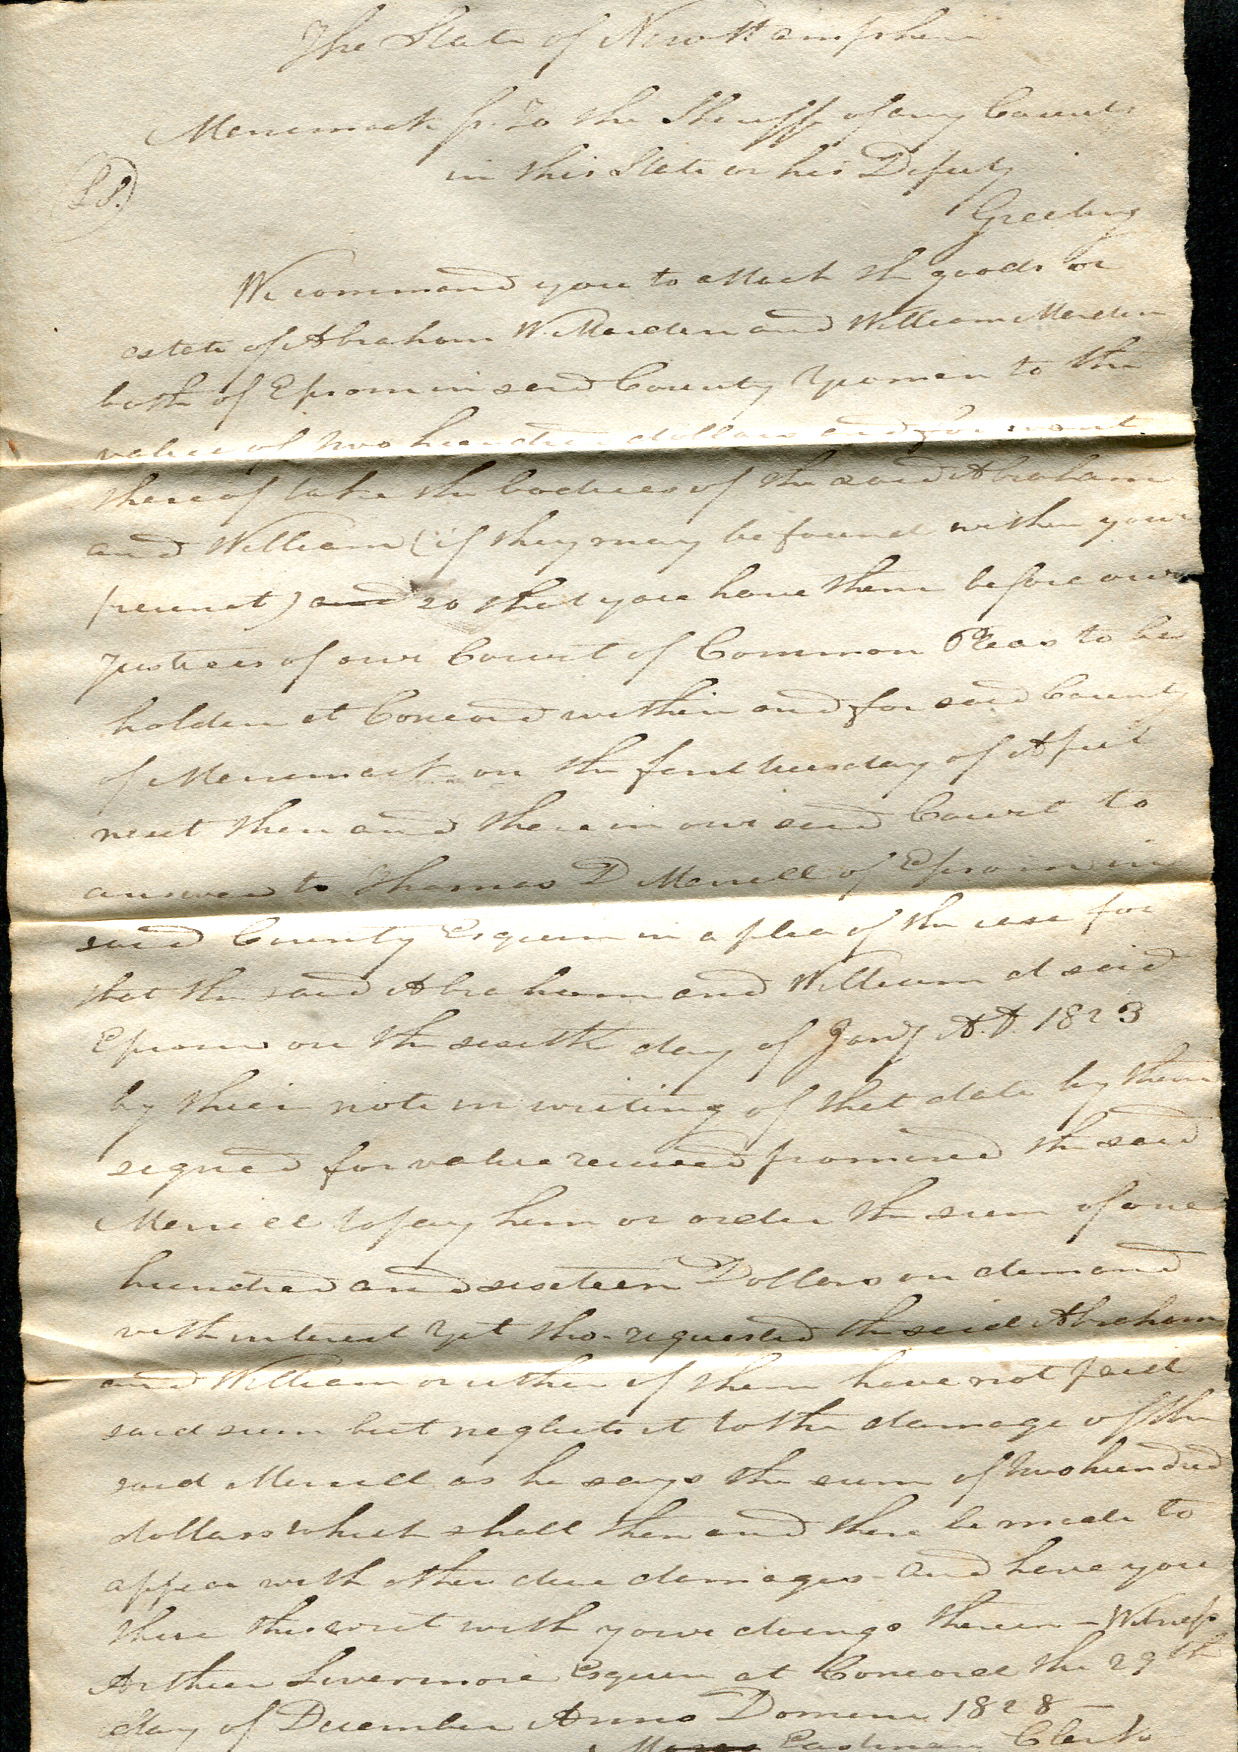 The State of New Hampshire
Merrimack ss. To the Sheriff of any County
in this State or his Deputy
(L.S.)
Greeting
We command you to attach the goods or
estate of Abraham W. Marden and William Marden
both of Epsom in said County Yeomen to the
value of two hundred dollars and for want
thereof take the bodies of the said Abraham
and William (if they may be found within your
precinct) and so that you have them before our
Justices of our Court of Common Pleas to be
holden at Concord within and for said County
of Merrimack on the first tuesday of April
next then and there in our said Court to
answer to Thomas D Merrill of Epsom in
said County Esquire in a plea of the case for
that the said Abraham and William at said
Epsom on the sixth day of Jany A.D. 1823
by their note in writing of that date by them
signed for value received promised the said
Merrill to pay him or order the sum of one
hundred and sixteen Dollars on demand
with interest Yet tho requested the said Abraham
and William or either of them have not paid
said sum but neglects it to the damage of the
said Merrill as he says the sum of two hundred
dollars which shall then and there be made to
appear with other due damages and have you
there this writ with your doings therein - Witness
Arthur Livermore Esquire at Concord the 29th
day of December Anno Domini 1828 -
Moses Eastman Clerk